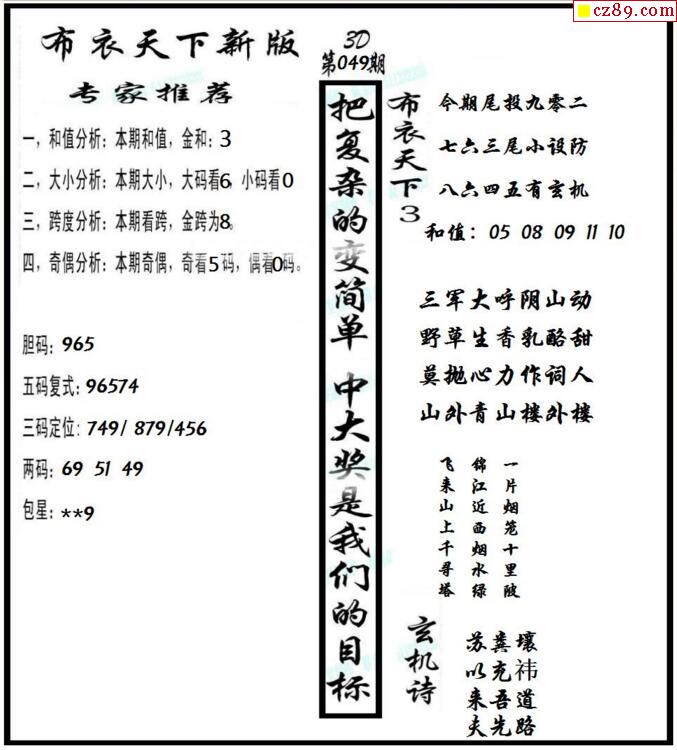 cz89.com
布衣天下新版
专家推荐
一，和值分析：本期和值，金和：3
二，大小分析：本期大小，大码看6，小码看0
三，跨度分析：本期看跨，金跨为8。
四，奇偶分析：本期奇偶，奇看5码，偶看0码。
胆码：965
五码复式：96574
三码定位：749/ 879/456
两码：69 51 49
包星：**9
3D
第049期
把复杂的变简单 中大奖是我们的目标
布衣天下3
今期尾投九零二
七六三尾小设防
八六四五有玄机
和值：05 08 09 11 10
三军大呼阴山动
野草生香乳酪甜
莫抛心力作词人
山外青山楼外楼
一片烟笼十里陂
锦江近西烟水绿
飞来山上千寻塔
玄机诗
苏粪壤
以充祎
来吾道
夫先路